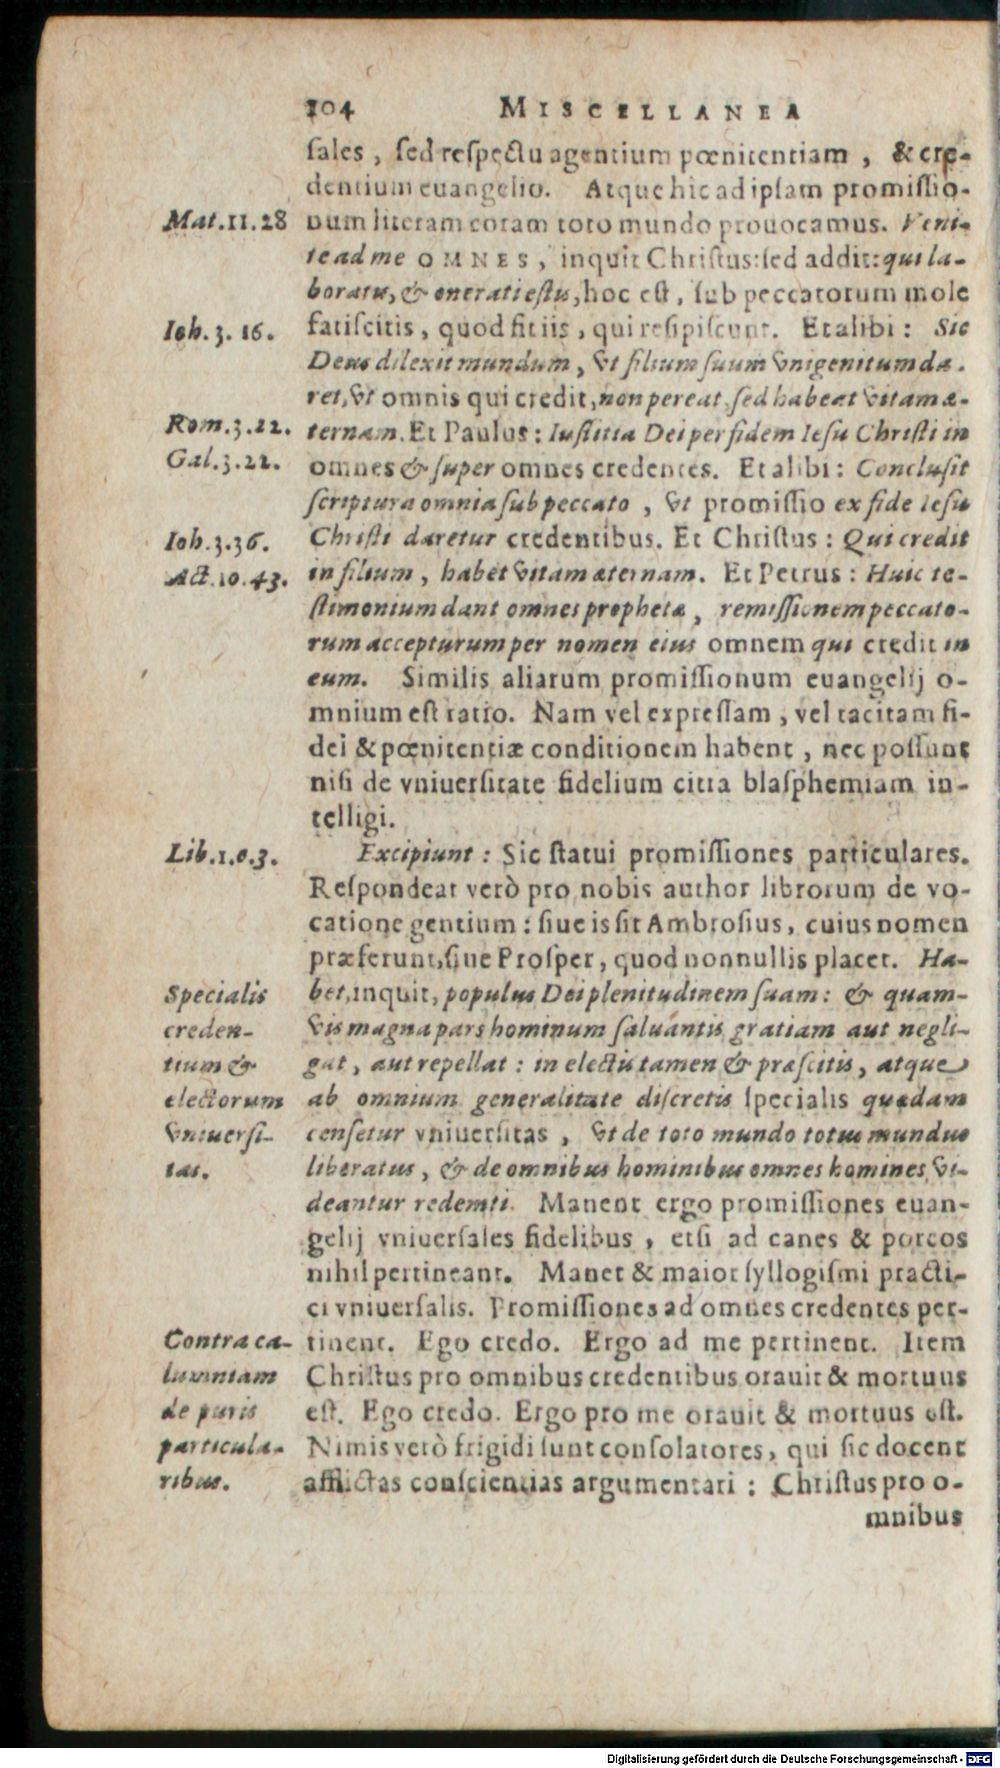 104 MISCELLANEA
ſales, ſed reſpectu agentium pœnitentiam, & cre-
dentium euangelio. Atque hic ad ipſam promiſſio-
Mat.11.28 num literam coram toto mundo prouocamus. Veni-
te ad me OMNES, inquit Chriſtus: ſed addit: qui la-
boratis, & onerati eſtis, hoc eſt, ſub peccatorum mole
Ioh. 3. 16. fatiſcitis, quod fit iis, qui reſipiſcunt. Et alibi: Sic
Deus dilexit mundum, vt filium ſuum vnigenitum da-
ret, vt omnis qui credit, non pereat, ſed habeat vitam æ-
Rom.3.22. ternam. Et Paulus: Iuſtitia Dei per fidem Ieſu Chriſti in
Gal.3.22. omnes & ſuper omnes credentes. Et alibi: Concluſit
ſcriptura omnia ſub peccato, vt promiſſio ex fide Ieſu
Ioh.3.36. Chriſti daretur credentibus. Et Chriſtus: Qui credit
Act.10.43. in filium, habet vitam æternam. Et Petrus: Huic te-
ſtimonium dant omnes prophetæ, remiſſionem peccato-
rum accepturum per nomen eius omnem qui credit in
eum. Similis aliarum promiſſionum euangelij o-
mnium eſt ratio. Nam vel expreſſam, vel tacitam fi-
dei & pœnitentiæ conditionem habent, nec poſſunt
niſi de vniuerſitate fidelium citra blaſphemiam in-
telligi.
Lib.1.c.3. Excipiunt: Sic ſtatui promiſſiones particulares.
Reſpondeat verò pro nobis author librorum de vo-
catione gentium: ſiue is ſit Ambroſius, cuius nomen
præferunt, ſiue Proſper, quod nonnullis placet. Ha-
Specialis bet, inquit, populus Dei plenitudinem ſuam: & quam-
creden- vis magna pars hominum ſaluantis gratiam aut negli-
tium & gat, aut repellat: in electis tamen & præſcitis, atque
electorum ab omnium generalitate diſcretis ſpecialis quædam
vniuerſi- cenſetur vniuerſitas, vt de toto mundo totus mundus
tas. liberatus, & de omnibus hominibus omnes homines vi-
deantur redemti. Manent ergo promiſſiones euan-
gelij vniuerſales fidelibus, etſi ad canes & porcos
nihil pertineant. Manet & maior ſyllogiſmi practi-
ci vniuerſalis. Promiſſiones ad omnes credentes per-
Contra ca- tinent. Ego credo. Ergo ad me pertinent. Item
lumniam Chriſtus pro omnibus credentibus orauit & mortuus
de puris eſt. Ego credo. Ergo pro me orauit & mortuus eſt.
particula- Nimis verò frigidi ſunt conſolatores, qui ſic docent
ribus. afflictas conſcientias argumentari: Chriſtus pro o-
mnibus
Digitalisierung gefördert durch die Deutsche Forschungsgemeinschaft - DFG